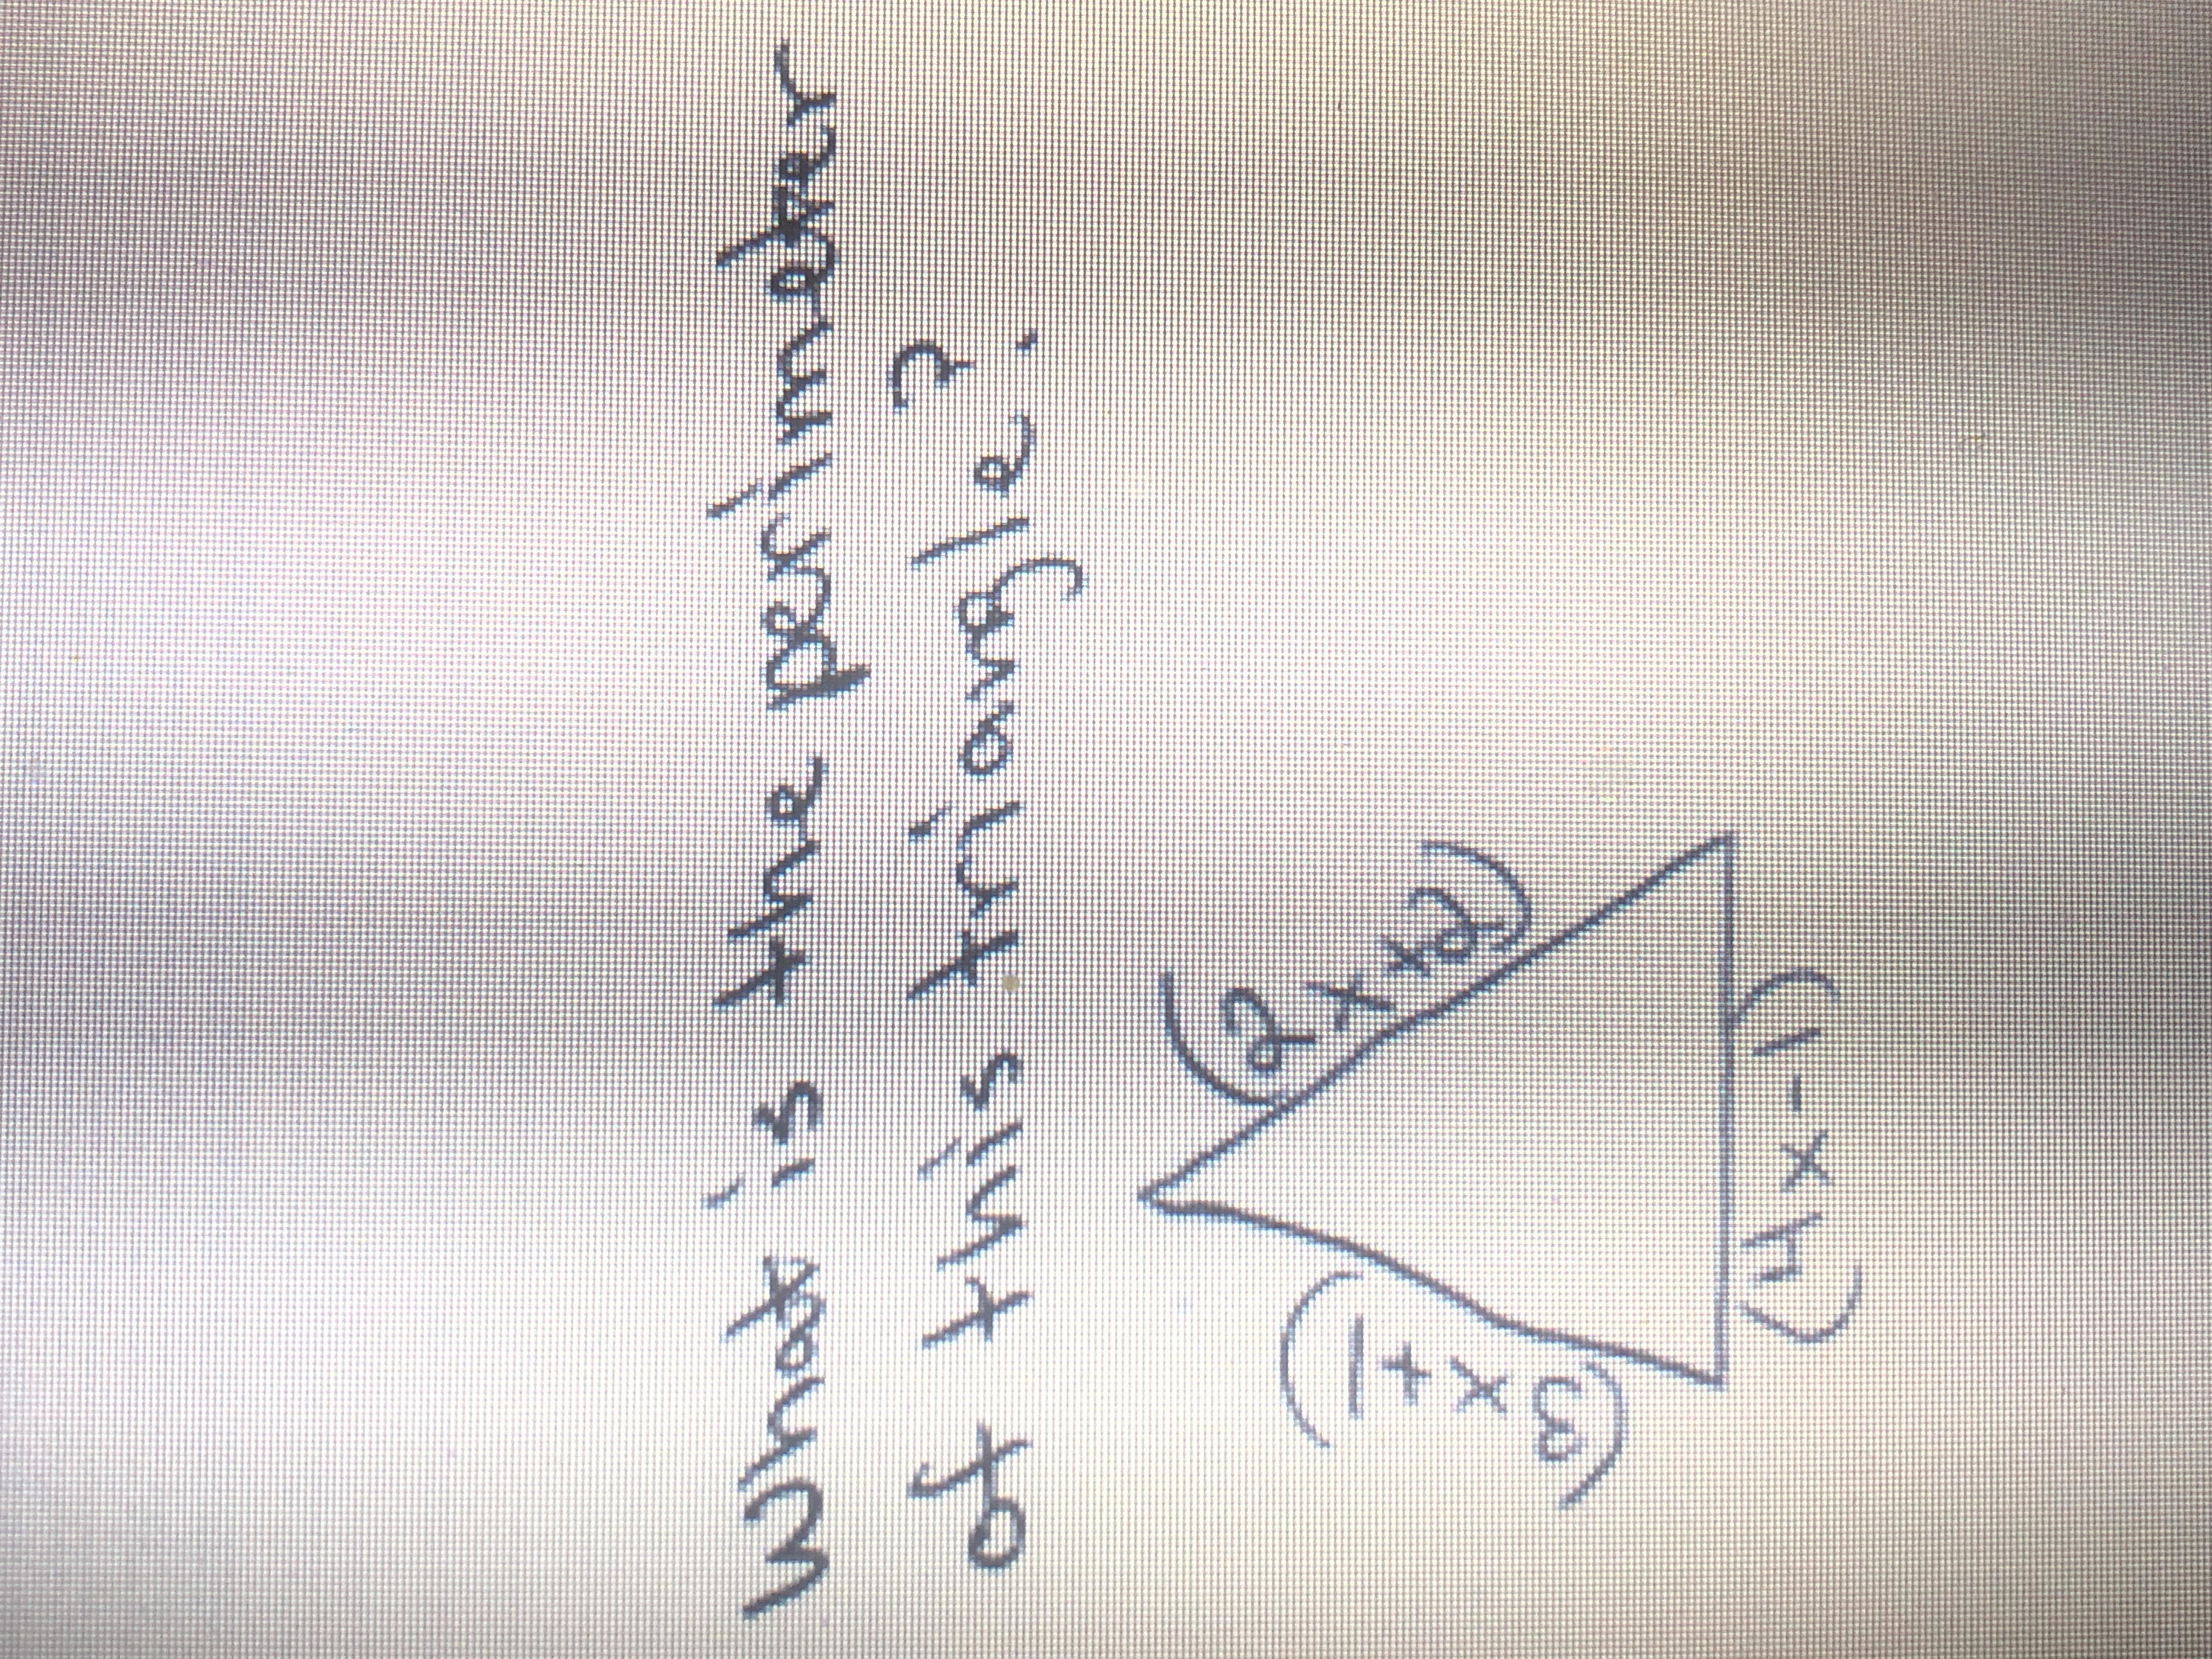 What is the perimeter
of this triangle?
(2x+2)
(3x+1)
(4x-1)